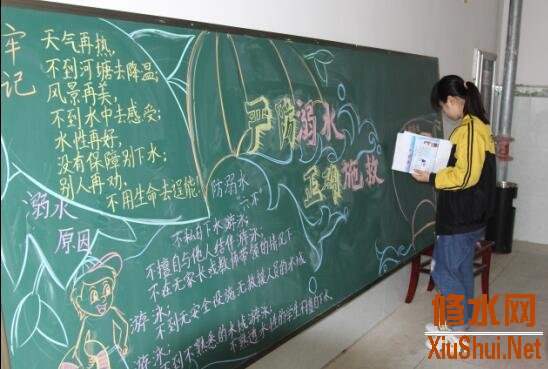 牢记
天气再热，
不到河塘去降温；
风景再美，
不到水中去感受；
水性再好，
没有保障别下水；
别人再劝，
不用生命去逞能
溺水
原因
严防溺水
正确施救
防溺水
六不
不私自下水游泳；
不擅自与他人结伴游泳；
不在无家长或教师带领的情况下
游泳；
不到无安全设施无救援人员的水域
游泳；
不到不熟悉的水域游泳；
不熟悉水性的学生不擅自下水
修水网
XiuShui.Net